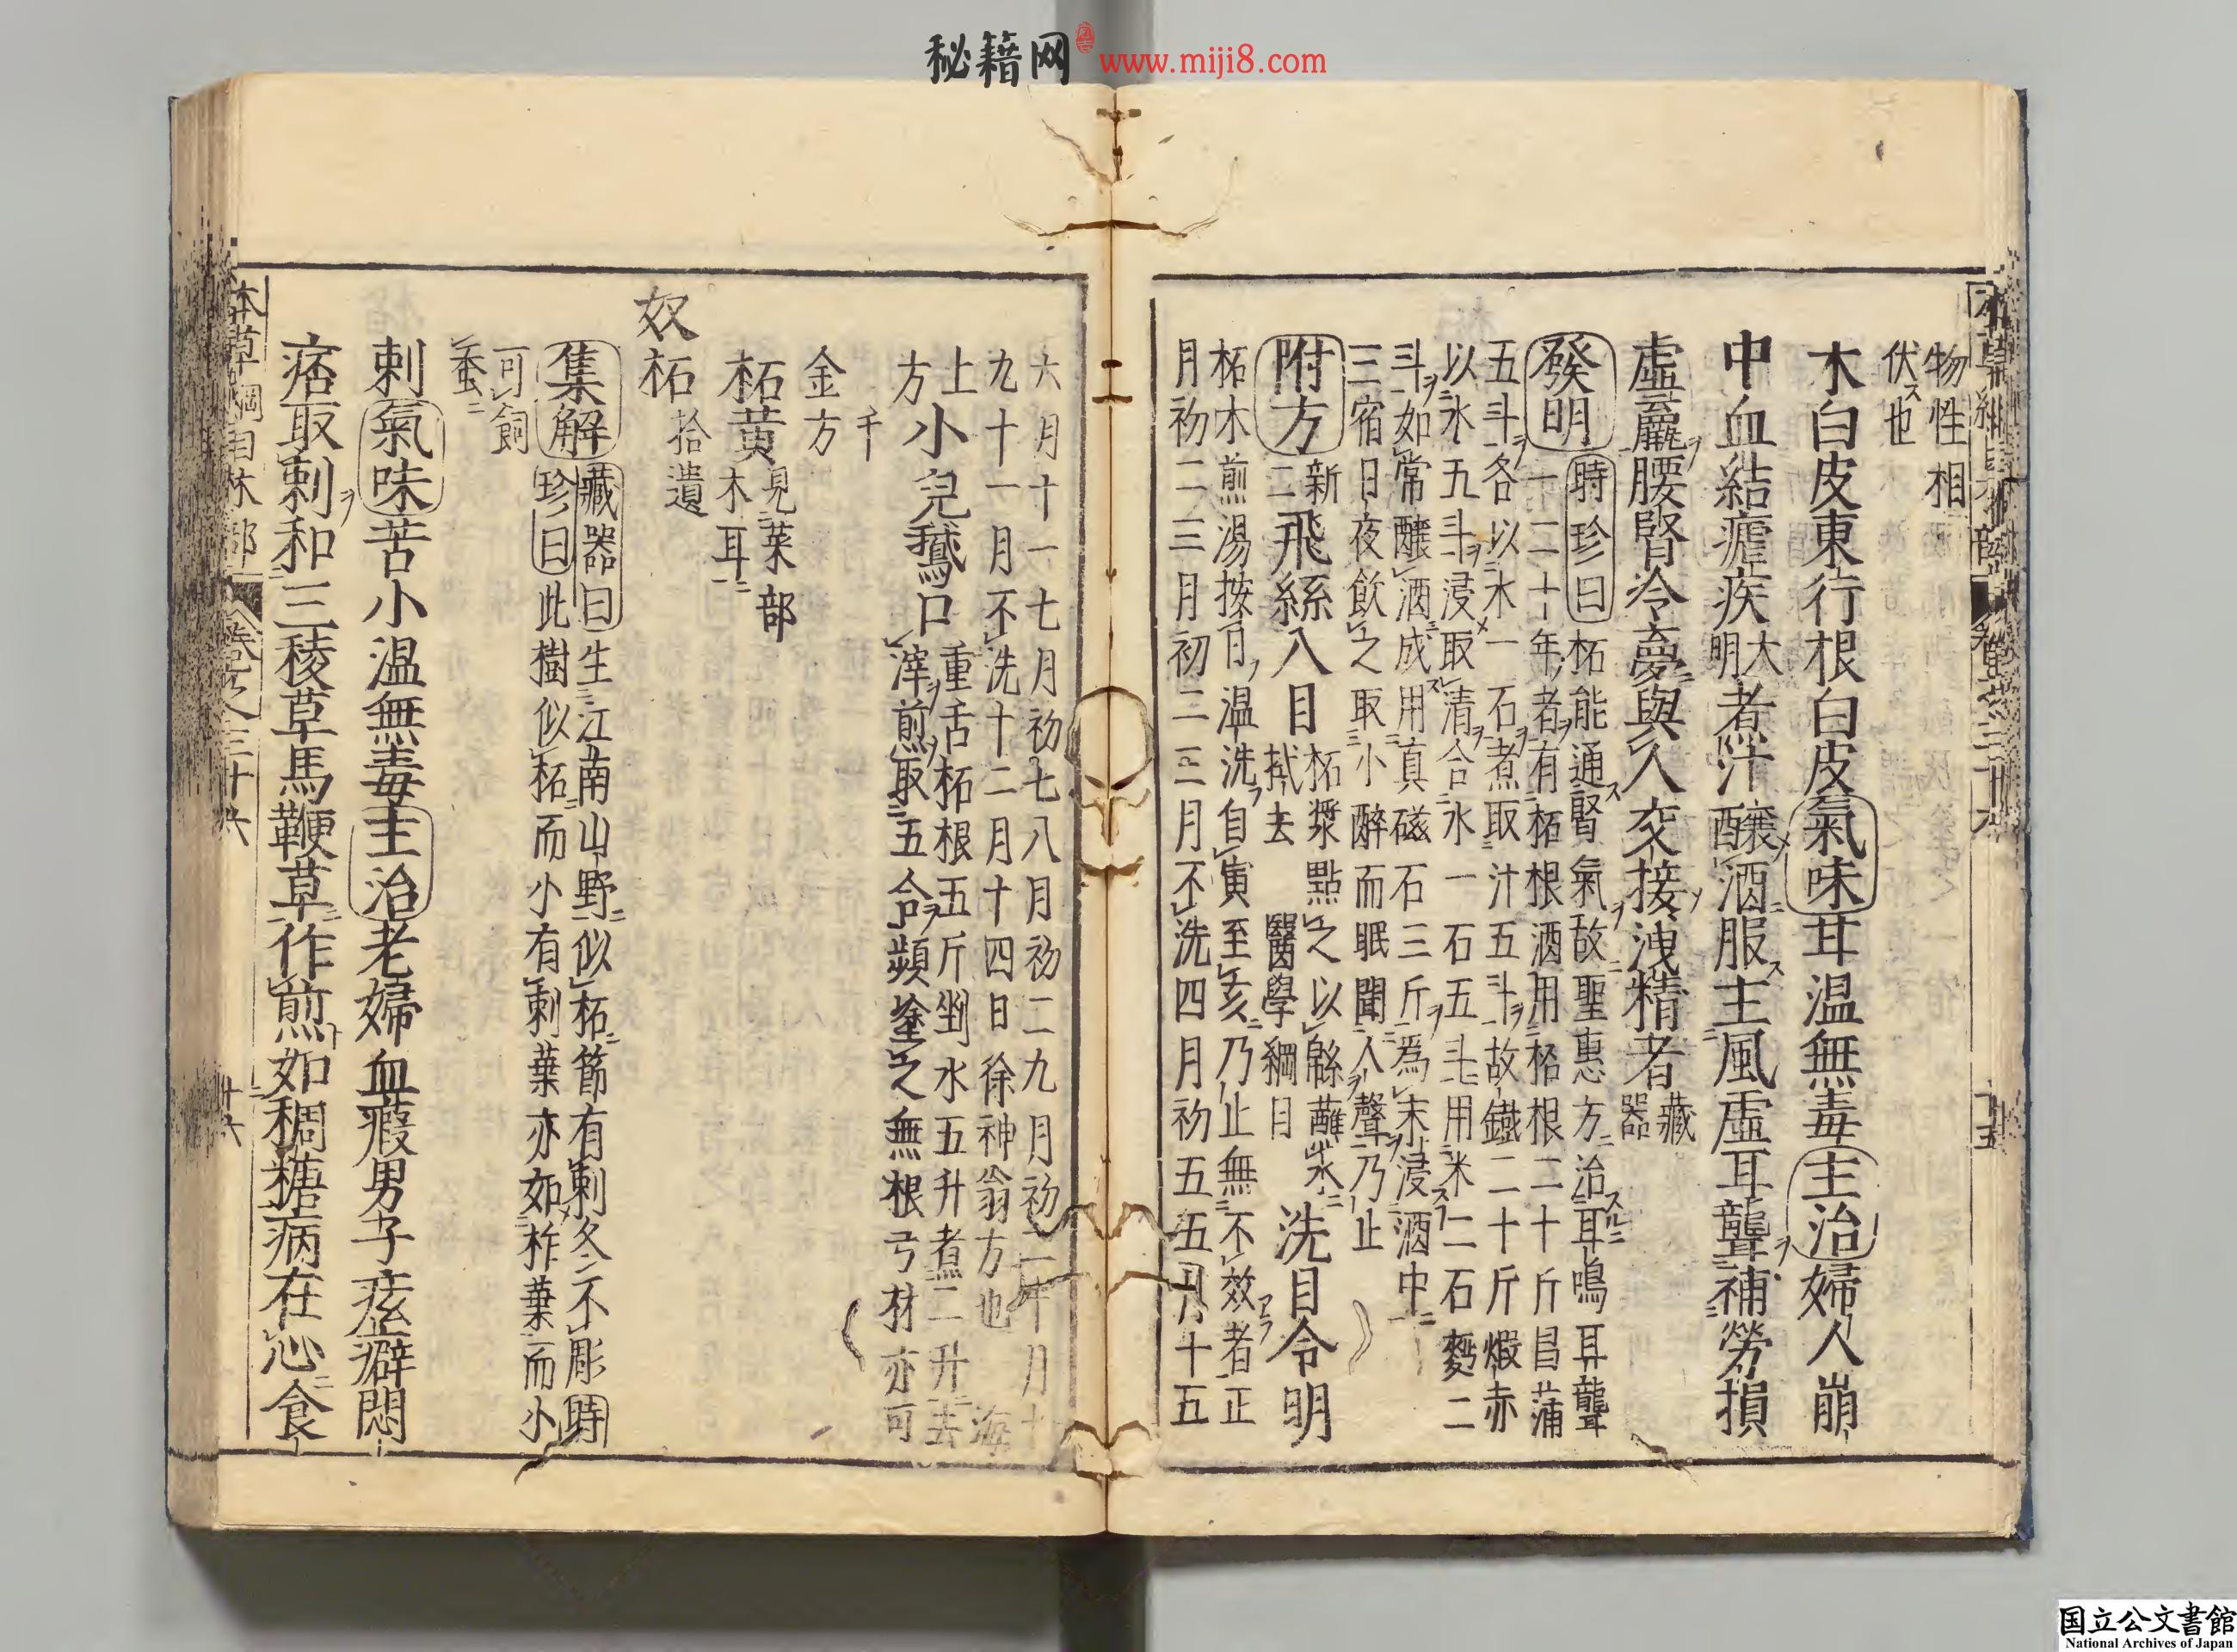 秘籍网 www.miji8.com
物性相
伏也
木白皮東行根白皮氣味甘温無毒主治婦人崩
中血結瘧疾大明煮汁釀酒服主風虛耳聾補勞損
虛羸腰腎冷夢與人交接洩精者藏器
發明時珍曰柘能通腎氣故聖惠方治耳鳴耳聾
一二十年者有柘根酒用柘根二十斤菖蒲
五斗各以水一石煮取汁五斗故鐵二十斤煅赤
以水五斗浸取清合水一石五斗用米二石麴二
斗如常釀酒成用真磁石三斤爲末浸酒中
三宿日夜飲之取小醉而眠聞人聲乃止
附方新二飛絲入目柘漿點之以綿蘸水拭去醫學綱目洗目令明
柘木煎湯按日温洗自寅至亥乃止無不效者正
月初二三月初二三月不洗四月初五五月十五
六月十一七月初七八月初二九月初二十月十
九十一月不洗十二月十四日徐神翁方也海
上方小兒鵝口重舌柘根五斤剉水五升煮二升去
滓煎取五合頻塗之無根弓材亦可千
金方
柘黃見菜部木耳
奴柘拾遺
集解藏器曰生江南山野似柘節有刺冬不彫時
珍曰此樹似柘而小有刺葉亦如柞葉而小
可飼蚕
刺氣味苦小温無毒主治老婦血瘕男子痃癖悶
痞取刺和三稜草馬鞭草作煎如稠糖病在心食
本草綱目木部 卷之三十六 十六
国立公文書館
National Archives of Japan